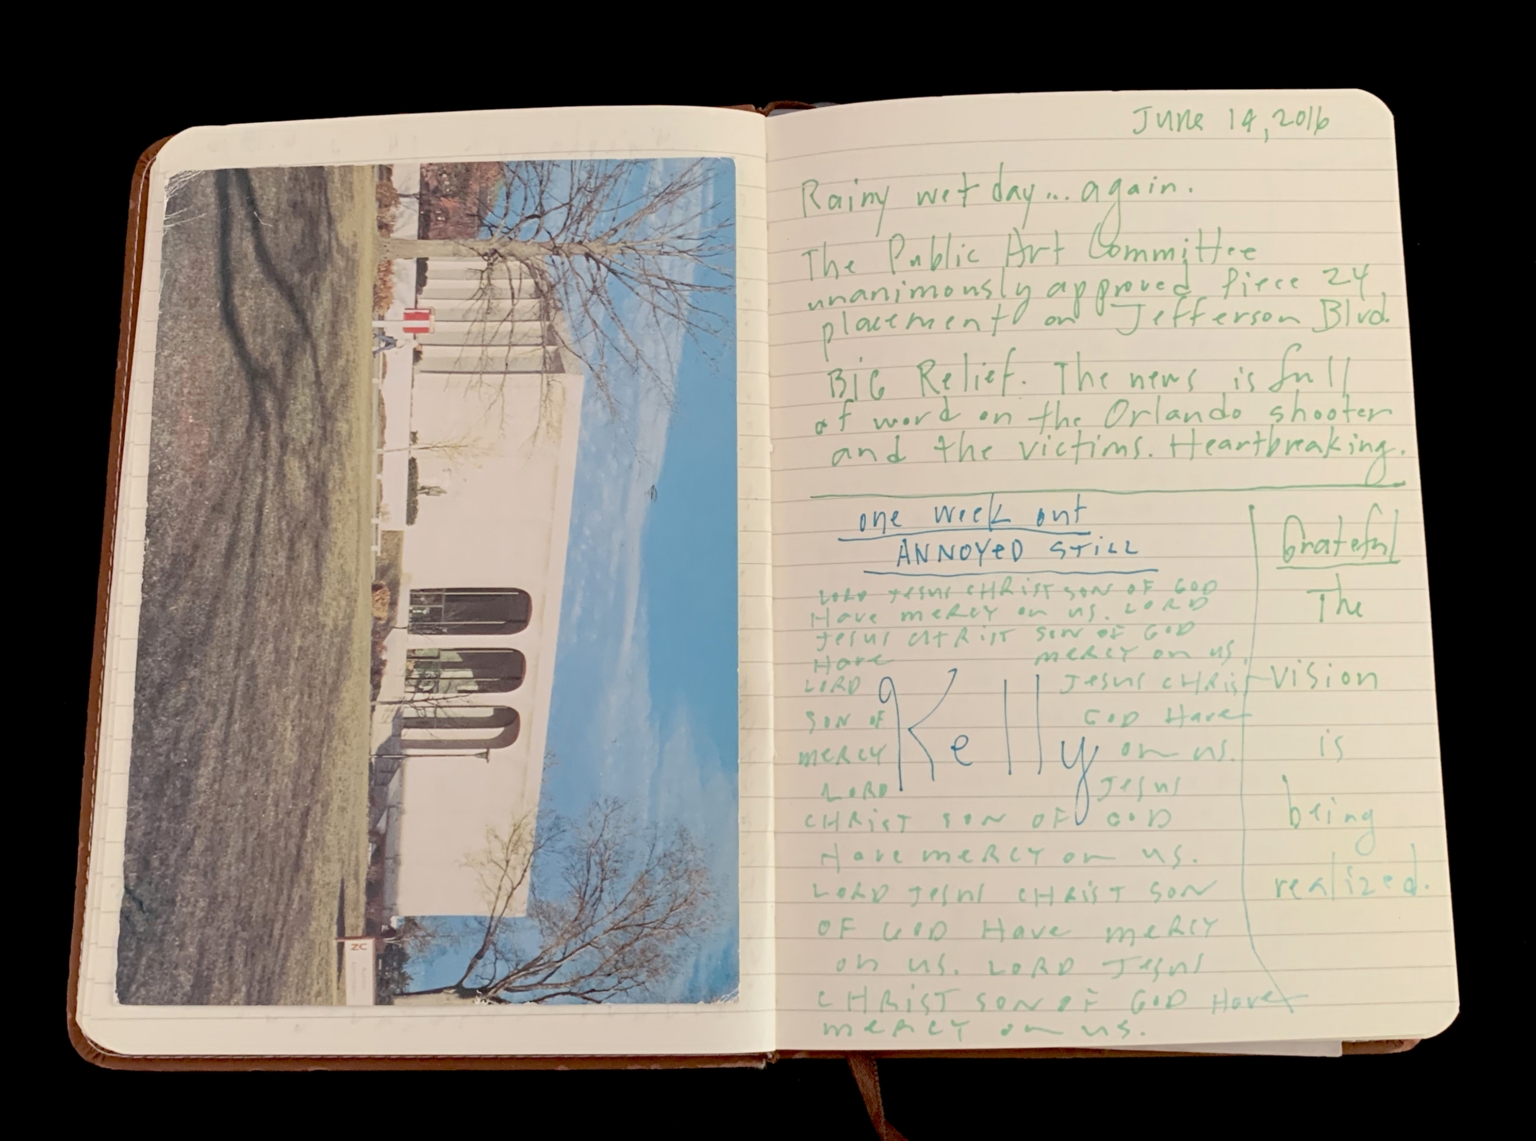 June 14, 2016
Rainy wet day... again.
The Public Art Committee
unanimously approved piece 24
placement on Jefferson Blvd.
BIG Relief. The news is full
of word on the Orlando shooter
and the victims. Heartbreaking.
one week out
ANNOYED STILL
LORD Jesus CHRIST SON OF GOD
Have meRCY on us. LORD
Jesus CHRIST SON OF GOD
Have meRCY on us.
LORD Jesus CHRIST
SON OF GOD Have
meRCY on us.
Kelly
LORD Jesus
CHRIST SON OF GOD
Have meRCY on us.
LORD Jesus CHRIST SON
OF GOD Have meRCY
on us. LORD Jesus
CHRIST SON OF GOD Have
meRCY on us.
Grateful
The
vision
is
being
realized.
ZC